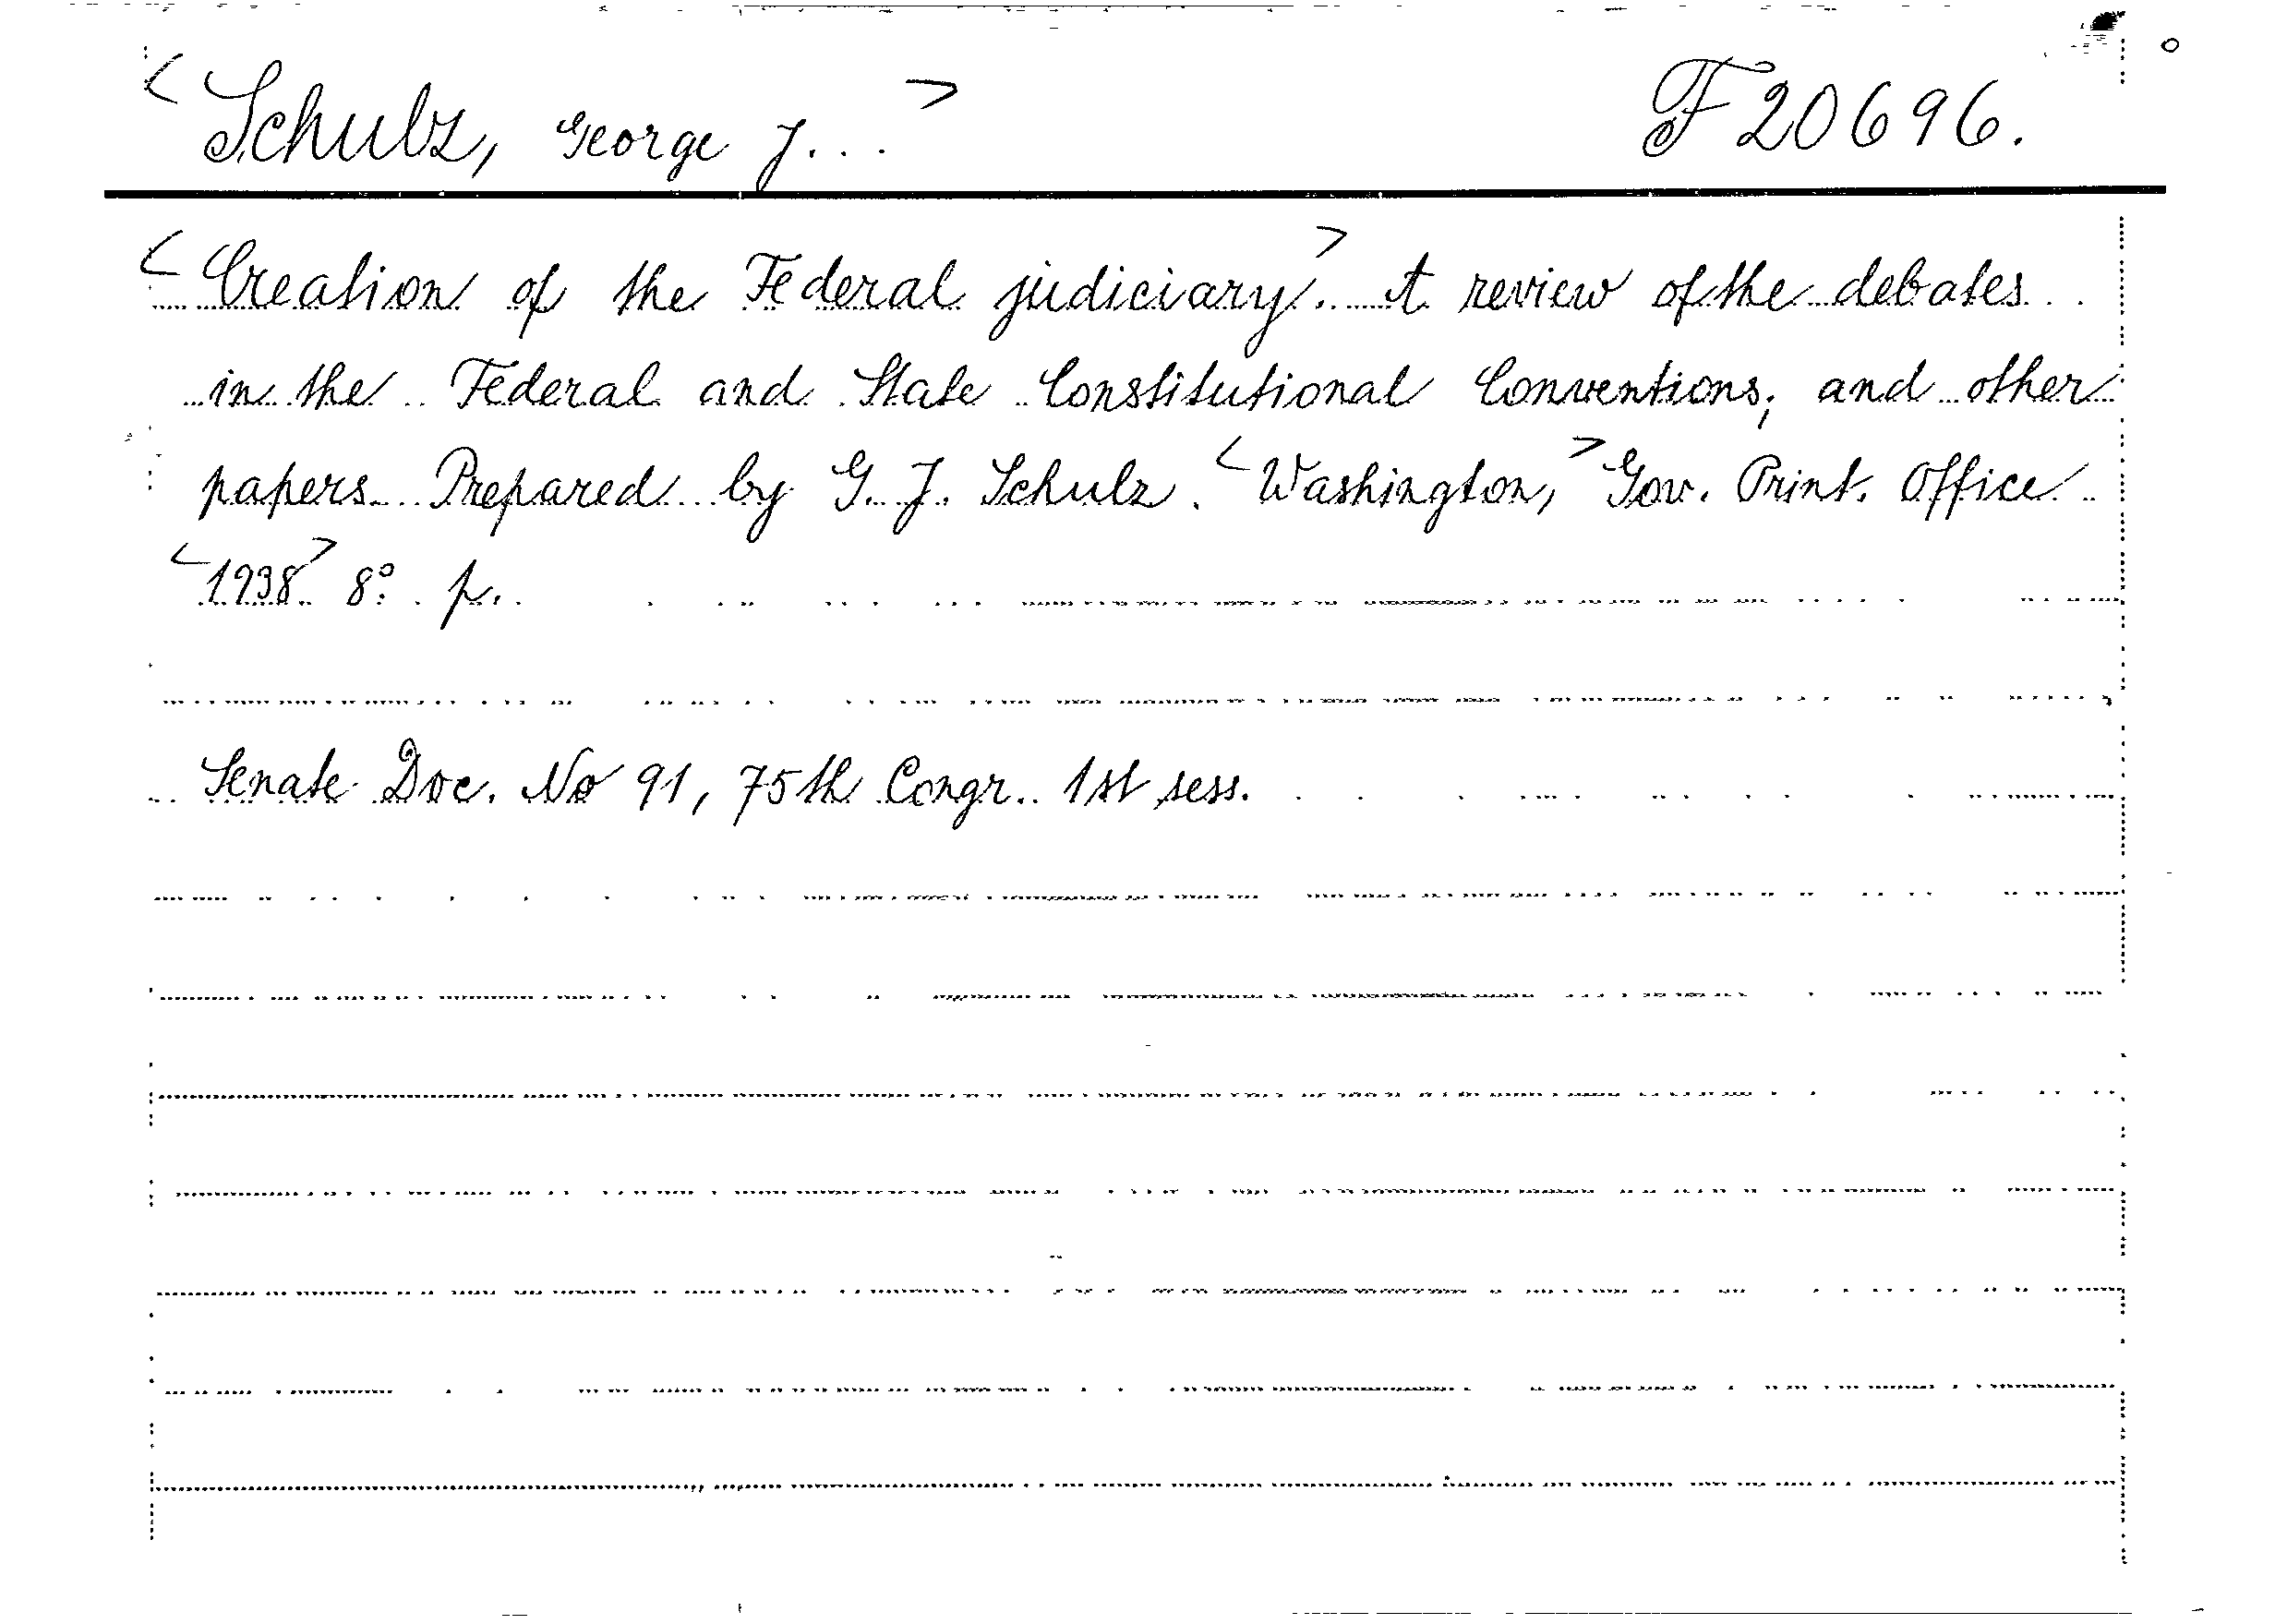 <Schulz, George J...> F 20696.
<Creation of the Federal judiciary>. A review of the debates
in the Federal and State Constitutional Conventions; and other
papers. Prepared by G. J. Schulz. <Washington,> Gov. Print. Office
<1938> 8° p.
Senate Doc. No 91, 75th Congr. 1st sess.